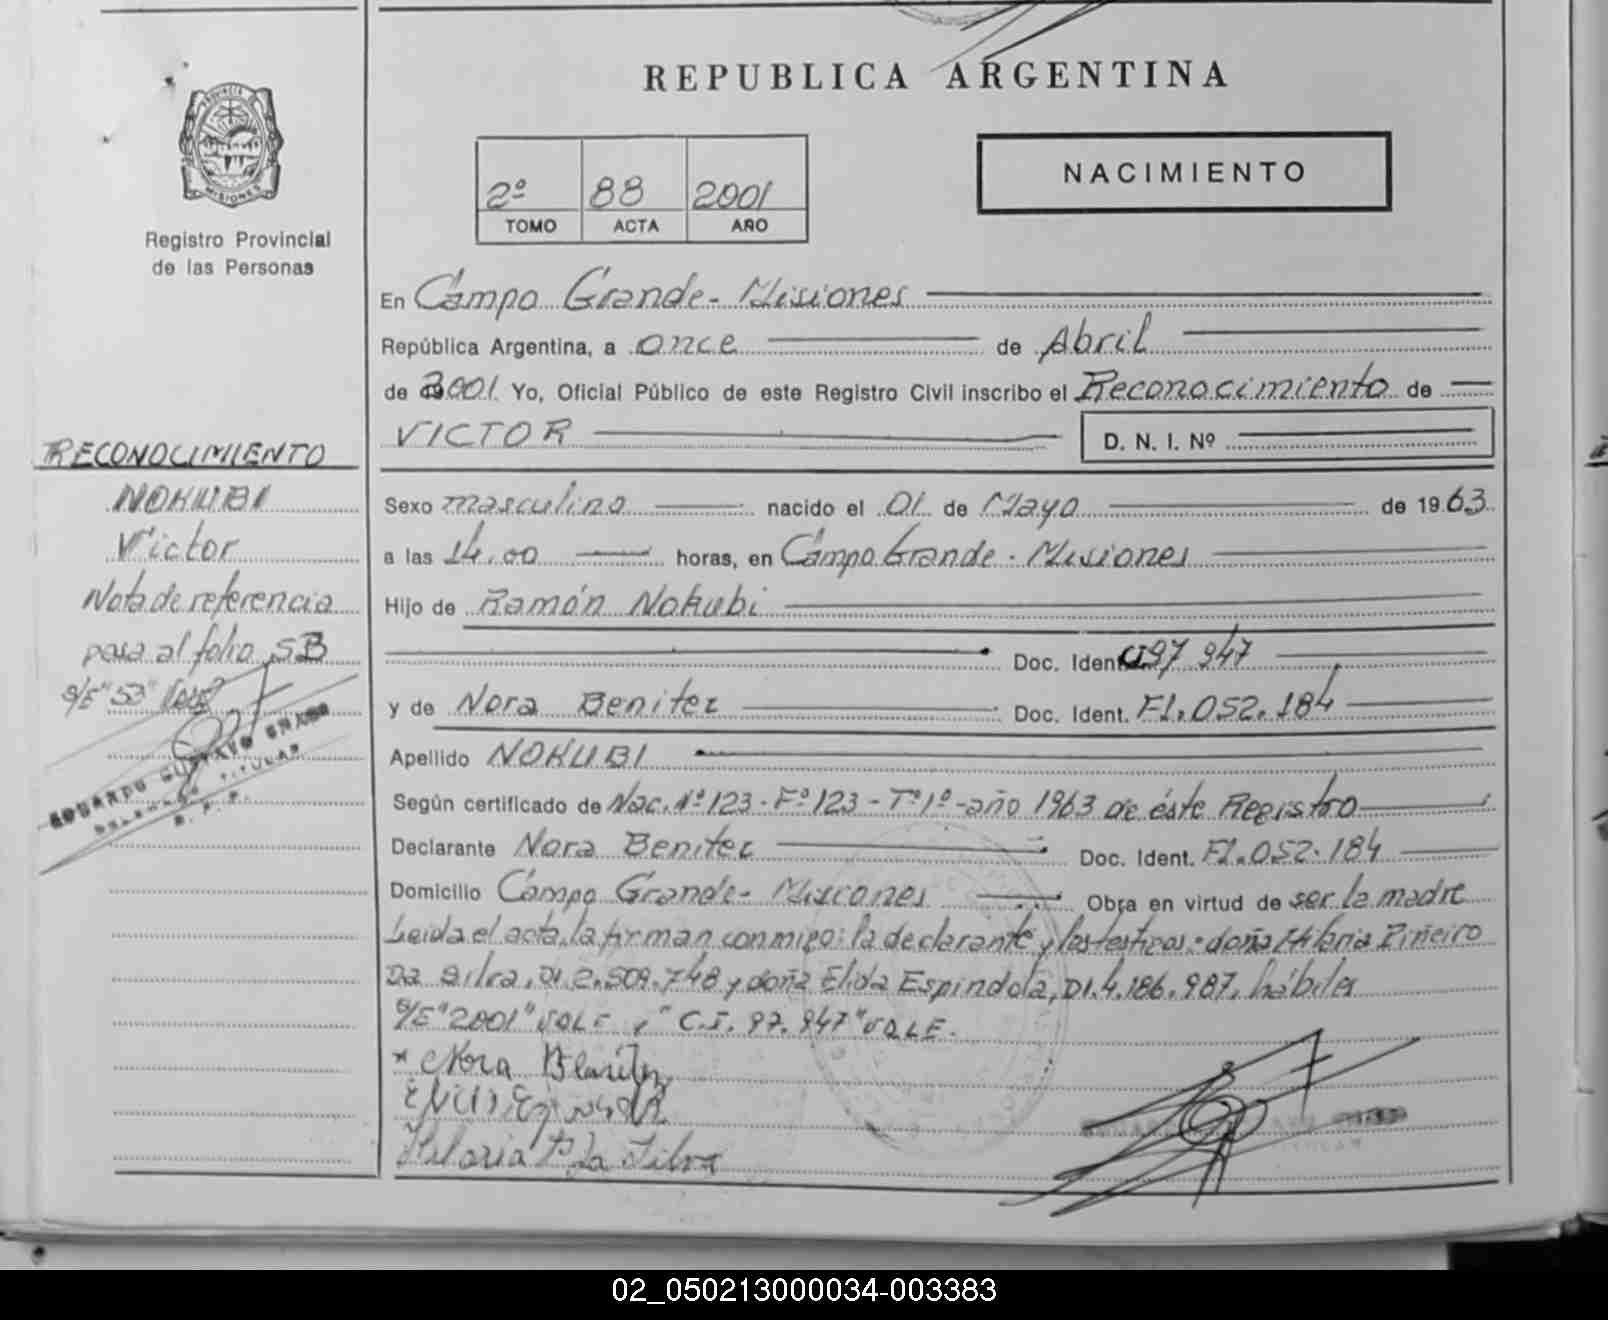 REPUBLICA ARGENTINA
PROVINCIA DE
MISIONES
Registro Provincial
de las Personas
2º 88 2001
TOMO ACTA AÑO
NACIMIENTO
En Campo Grande - Misiones
República Argentina, a once de Abril
de 2001 Yo, Oficial Público de este Registro Civil inscribo el Reconocimiento de
VICTOR D. N. I. Nº
RECONOCIMIENTO
NOKUBI
Victor
Nota de referencia
pasa al folio 53
S/E "53" Vale
EDUARDO GUSTAVO
DELEGADO TITULAR
R. P. P.
Sexo masculino nacido el 01 de Mayo de 1963
a las 14.00 horas, en Campo Grande - Misiones
Hijo de Ramón Nokubi
Doc. Ident. 97.947
y de Nora Benitez Doc. Ident. F1.052.184
Apellido NOKUBI
Según certificado de Nac. Nº 123 - Fº 123 - Tº 1º - año 1963 de éste Registro
Declarante Nora Benitez Doc. Ident. F1.052.184
Domicilio Campo Grande - Misiones Obra en virtud de ser la madre
Leida el acta, la firman conmigo: la declarante y las testigos: doña Hilaria Piñeiro
Da Silva, DI. 2.509.748 y doña Elida Espindola, DI. 4.186.987, hábiles
S/E "2001" VALE y "C.I. 97.947" VALE.
* Nora Benitez
Hilaria P Da Silva
02_050213000034-003383